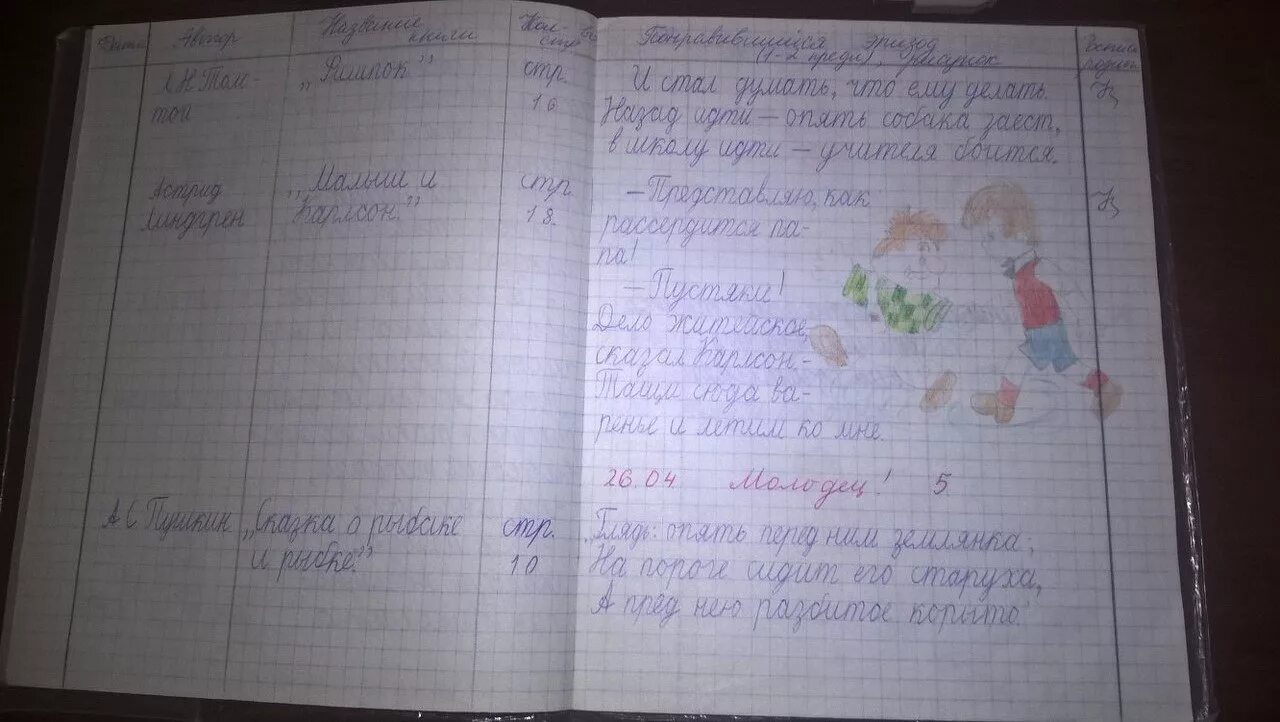 Дата Автор Название книги Кол-во стр. Понравившийся эпизод (1-2 предл), рисунок
Л Н Толс-
той
„Филипок"
стр.
16
И стал думать, что ему делать.
Назад идти – опять собака заест,
в школу идти – учителя боится.
Астрид
Линдгрен
„Малыш и
Карлсон."
стр
18.
– Представляю, как
рассердится па-
па!
– Пустяки!
Дело житейское,
сказал Карлсон.-
Тащи сюда ва-
ренье и летим ко мне.
26.04 Молодец! 5
А С Пушкин
„Сказка о рыбаке
и рыбке."
стр.
10
„Глядь: опять перед ним землянка;
На пороге сидит его старуха,
А пред нею разбитое корыто."